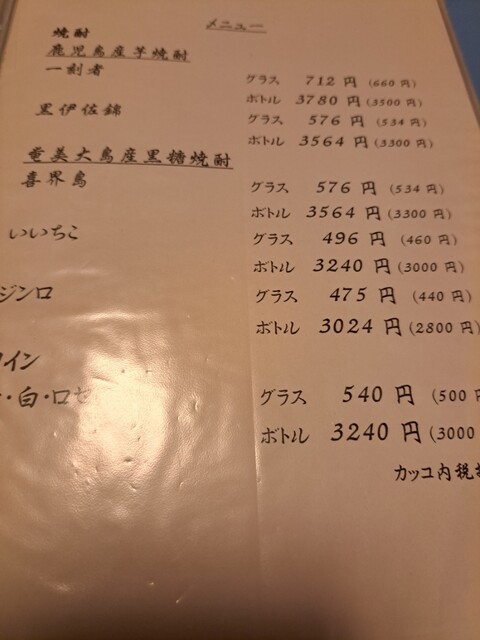 メニュー
焼酎
鹿児島産芋焼酎
一刻者
グラス 712 円 (660 円)
ボトル 3780 円 (3500 円)
黒伊佐錦
グラス 576 円 (534 円)
ボトル 3564 円 (3300 円)
奄美大島産黒糖焼酎
喜界島
グラス 576 円 (534 円)
ボトル 3564 円 (3300 円)
いいちこ
グラス 496 円 (460 円)
ボトル 3240 円 (3000 円)
ジンロ
グラス 475 円 (440 円)
ボトル 3024 円 (2800 円)
イン
・白・ロゼ
グラス 540 円 (500 円
ボトル 3240 円 (3000
カッコ内税